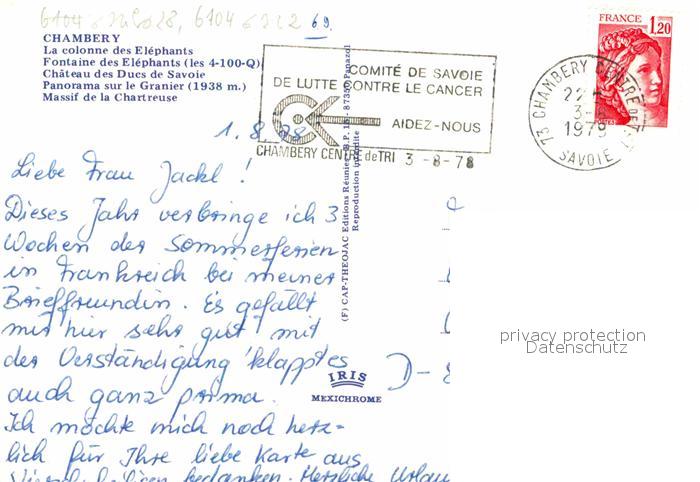 6104
69.
CHAMBERY
La colonne des Eléphants
Fontaine des Eléphants (les 4-100-Q)
Château des Ducs de Savoie
Panorama sur le Granier (1938 m.)
Massif de la Chartreuse
COMITÉ DE SAVOIE
DE LUTTE CONTRE LE CANCER
AIDEZ-NOUS
CHAMBERY CENTRE de TRI 3 -8-78
FRANCE
1,20
73 CHAMBERY CENTRE DE TRI
22
3-
1978
SAVOIE
1.8.78
Liebe Frau Jackl!
Dieses Jahr verbringe ich 3
Wochen der Sommerferien
in Frankreich bei meiner
Brieffreundin. Es gefällt
mir hier sehr gut mit
der Verständigung klappt es
auch ganz prima.
Ich möchte mich noch herz-
lich für Ihre liebe Karte aus
bedanken. Herzliche Urlau
(F) CAP-THEOJAC Editions Réunies B.P. 16 - 87350 Panazol
Reproduction interdite
IRIS
MEXICHROME
D-8
privacy protection
Datenschutz